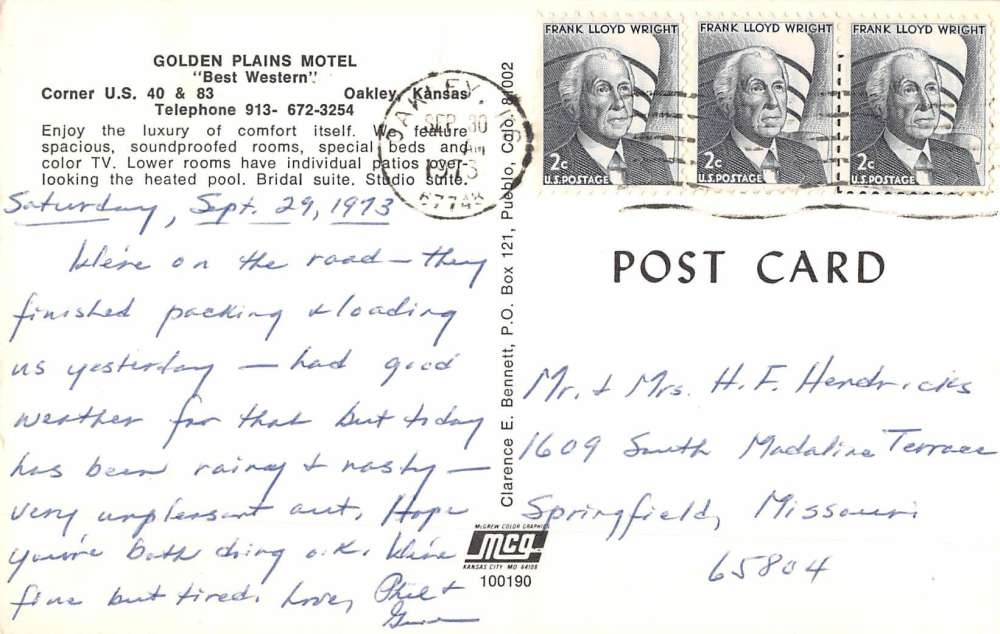 GOLDEN PLAINS MOTEL
"Best Western"
Corner U.S. 40 & 83 Oakley, Kansas
Telephone 913- 672-3254
Enjoy the luxury of comfort itself. We feature
spacious, soundproofed rooms, special beds and
color TV. Lower rooms have individual patios over-
looking the heated pool. Bridal suite. Studio suite.
Saturday, Sept. 29, 1973
We're on the road — they
finished packing & loading
us yesterday — had good
weather for that but today
has been rainy & nasty —
very unpleasant out. Hope
you're both doing o.k. We're
fine but tired. Love, Phil &
OAKLEY
SEP 30
1973
67748
Clarence E. Bennett, P.O. Box 121, Pueblo, Colo. 81002
McGREW COLOR GRAPHICS
mcg
KANSAS CITY, MO 64108
100190
FRANK LLOYD WRIGHT
2c
U.S. POSTAGE
FRANK LLOYD WRIGHT
2c
U.S. POSTAGE
FRANK LLOYD WRIGHT
2c
U.S. POSTAGE
POST CARD
Mr. & Mrs. H. F. Hendricks
1609 South Madaline Terrace
Springfield, Missouri
65804